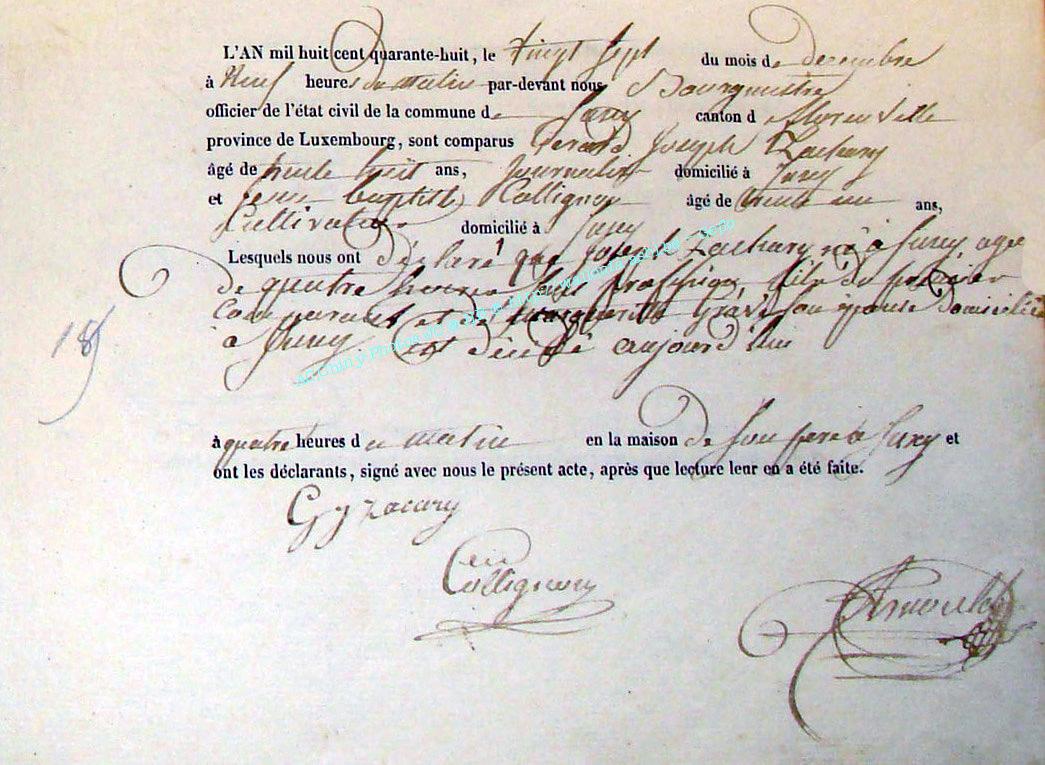 L'AN mil huit cent quarante-huit, le vingt sept du mois de decembre
à Neuf heures du matin par-devant nous Bourgmestre
officier de l'état civil de la commune de Suxy canton d florenville
province de Luxembourg, sont comparus Gerard Joseph Zachary
âgé de trente huit ans, Journalier domicilié à Suxy
et Jean baptiste Collignon âgé de trente un ans,
Cultivateur domicilié à Suxy
Lesquels nous ont déclaré que Joseph Zachary né à Suxy agé
de quatre heures sans proffession, fils du premier
Comparant et de marguerite son épouse Domiciliés
à Suxy est décédé aujourd'hui
à quatre heures du matin en la maison de son pere à Suxy et
ont les déclarants, signé avec nous le présent acte, après que lecture leur en a été faite.
G J Zacary
Collignon
185